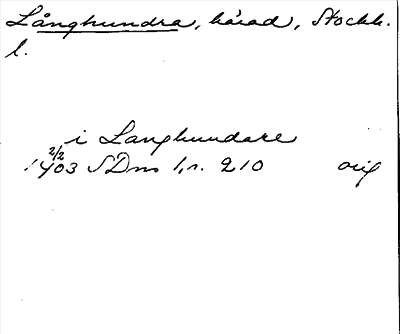 Långhundra, härad, Stockh.
l.
i Langhundare
2/2
1403 SDns 1, r. 210 orig